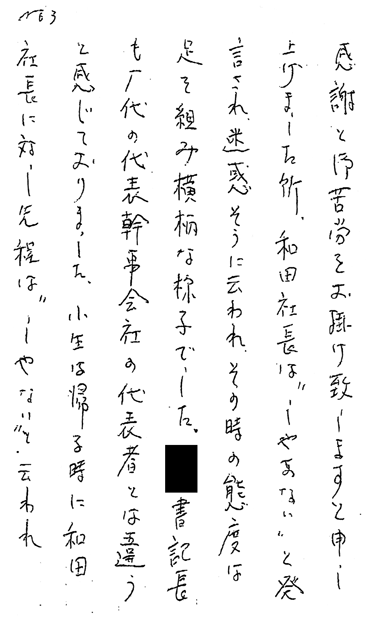 No3
感謝と御苦労をお掛け致しますと申し
上げました所、和田社長は〝しやあない〟と発
言され、迷惑そうに云われ、その時の態度は
足を組み横柄な様子でした。書記長
も厂代の代表幹事会社の代表者とは違う
と感じておりました、小生は帰る時に和田
社長に対し先程は〝しやない〟と云われ